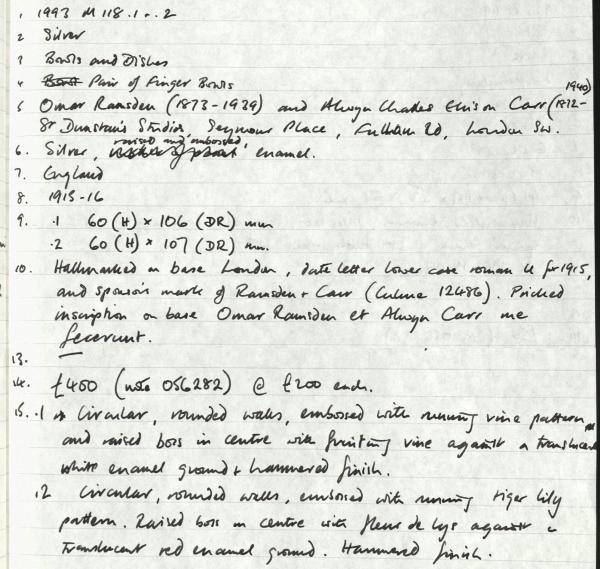 1 1993 M 118.1 - .2
2 Silver
3 Bowls and Dishes
4 Pair of Finger Bowls
1940)
5 Omar Ramsden (1873-1939) and Alwyn Charles Ellison Carr (1872-
St Dunstan's Studios, Seymour Place, Fulham Rd, London SW.
raised and embossed,
6. Silver, enamel.
7. England
8. 1915-16
9. .1 60 (H) x 106 (DR) mm
.2 60 (H) x 107 (DR) mm.
10. Hallmarked on base London, date letter lower case roman u for 1915,
and sponsor's mark of Ramsden + Carr (Culme 12486). Pricked
inscription on base Omar Ramsden et Alwyn Carr me
fecerunt.
13.
14. £400 (note 056282) @ £200 each.
15. .1 Circular, rounded walls, embossed with running vine pattern
and raised boss in centre with fruiting vine against a translucent
white enamel ground + hammered finish.
.2 Circular, rounded walls, embossed with running tiger lily
pattern. Raised boss in centre with fleur de lys against a
translucent red enamel ground. Hammered finish.